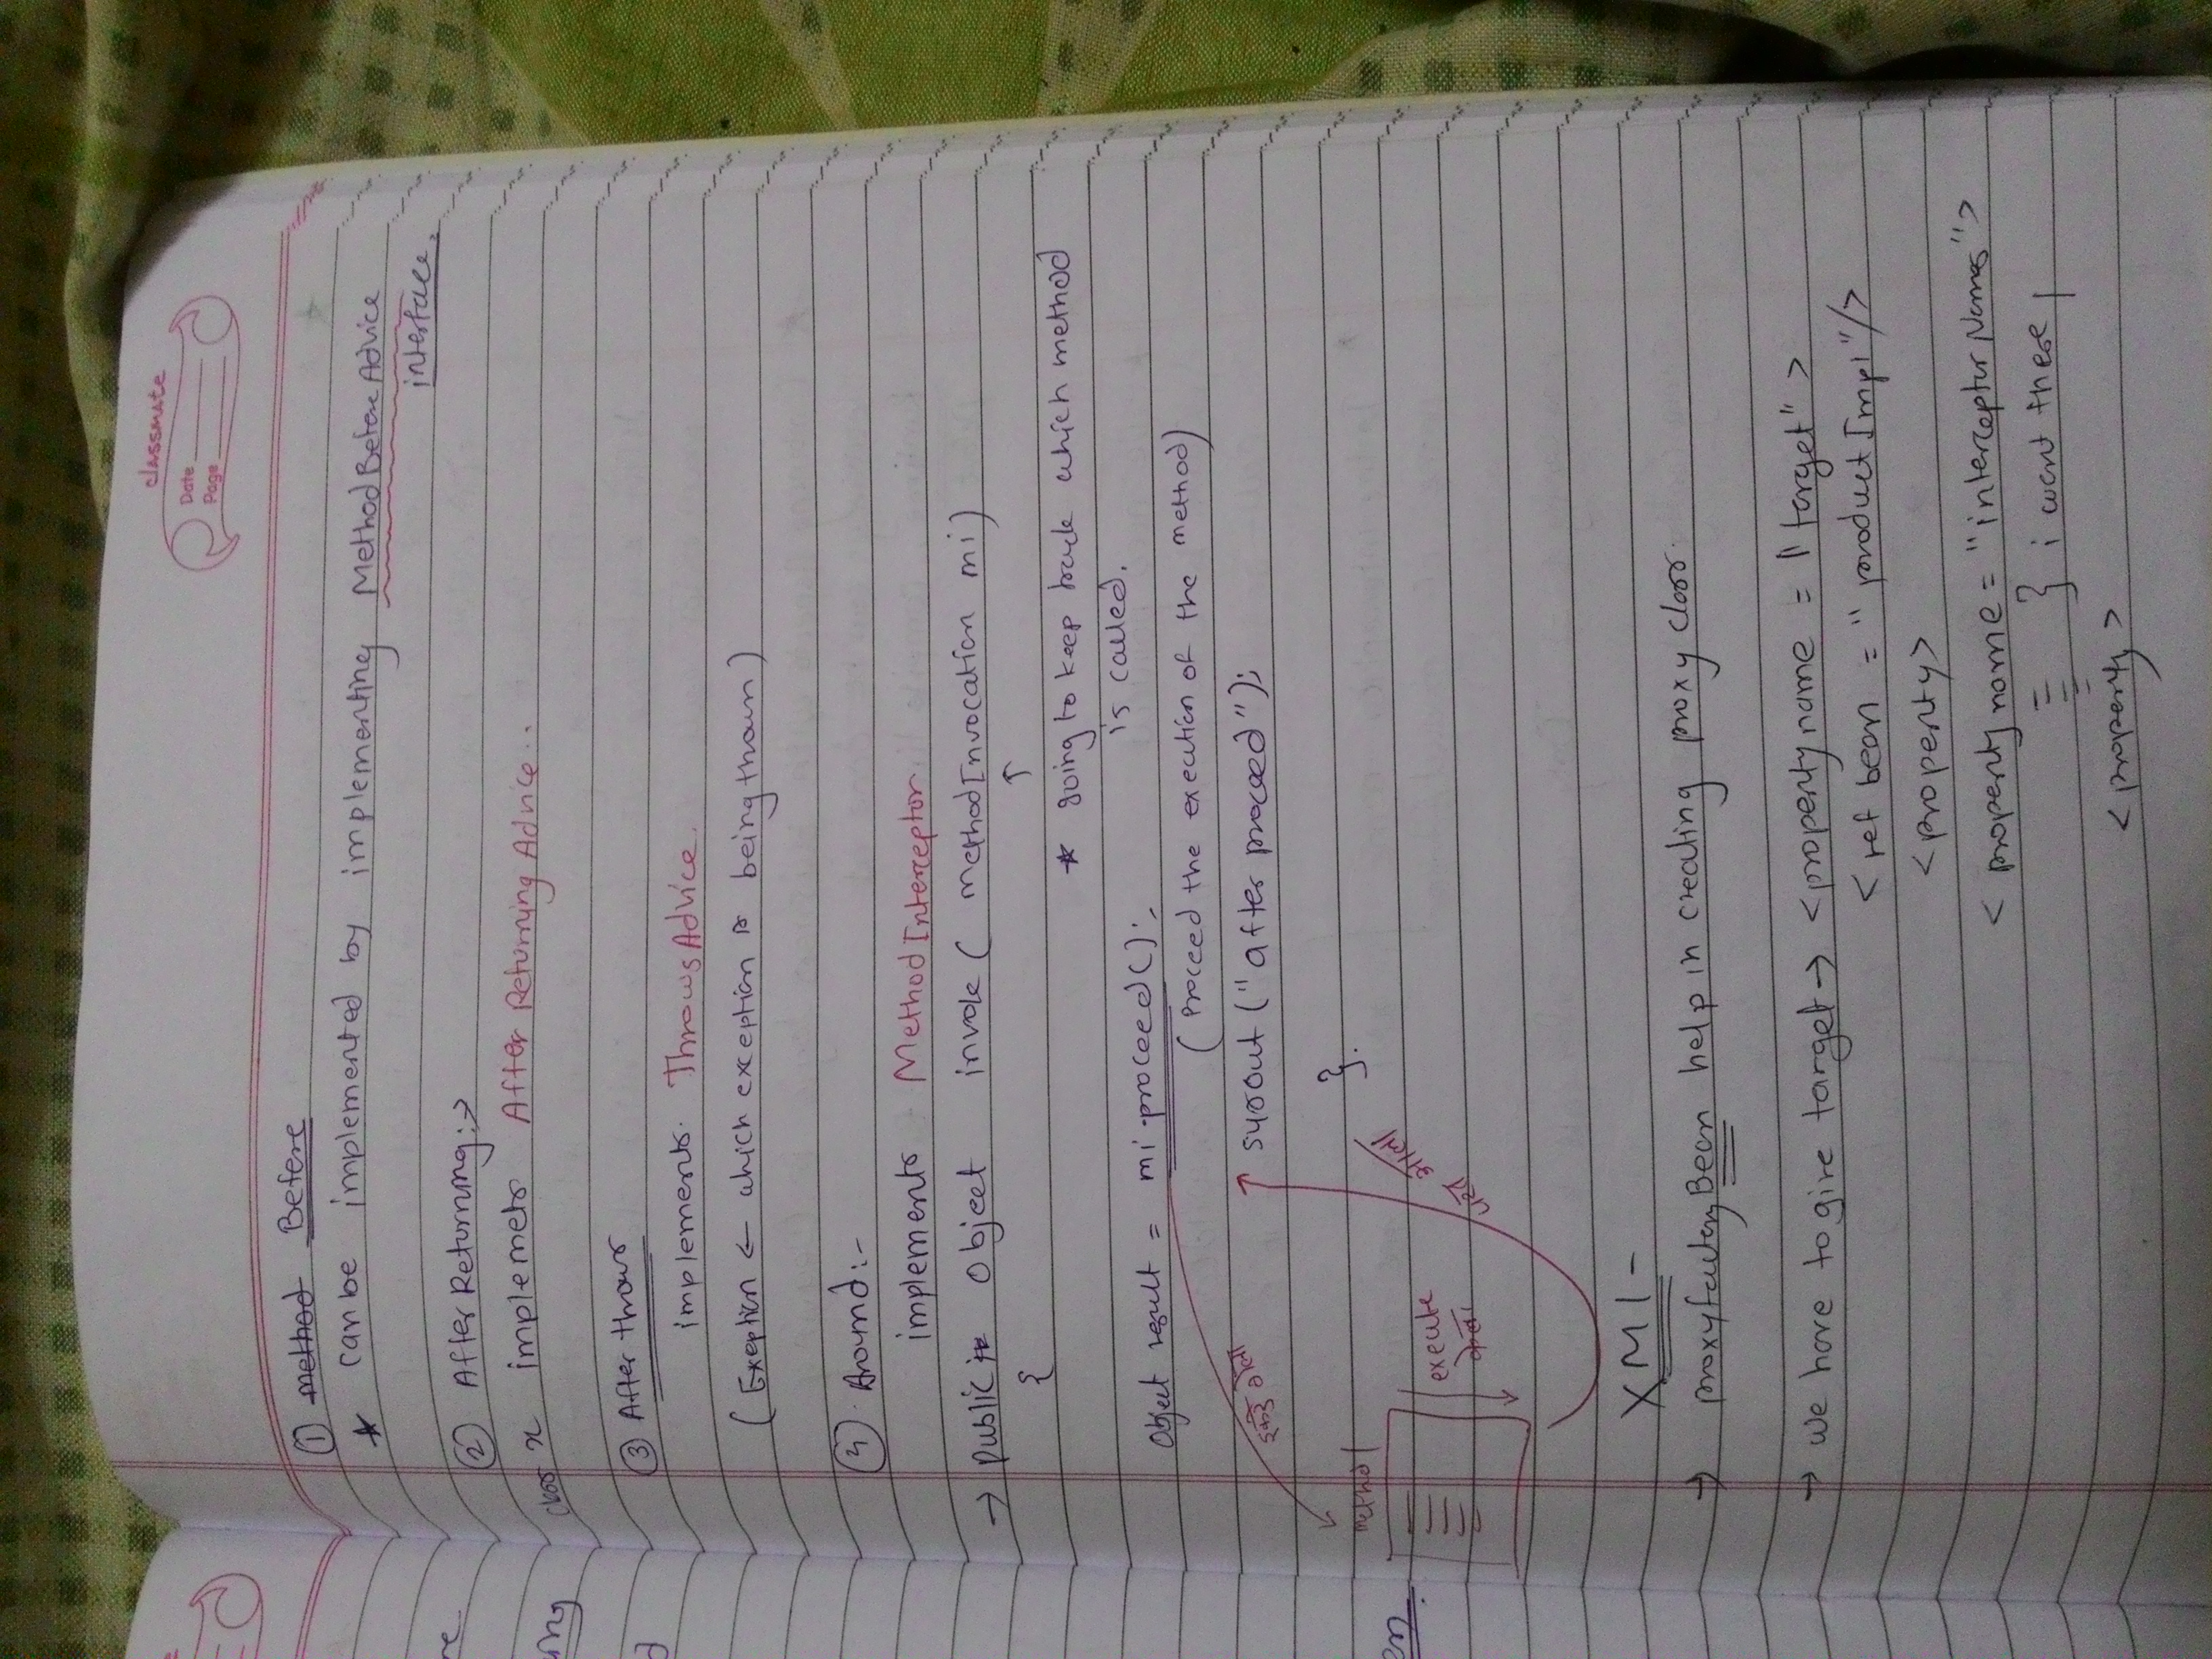 classmate
Date
Page
① method Before
★ can be implemented by implementing MethodBeforeAdvice
interface.
② AfterReturning :->
class x implemets AfterReturningAdvice..
③ After throws
implements. ThrowsAdvice.
(Exeption ← which exception is being thown)
④ Around:-
implements MethodInterceptor
→ public Object invoke ( methodInvocation mi)
{
↑
★ going to keep track which method
is called.
Object result = mi.proceed();
(Proceed the execution of the method)
इकडे गेला
sysout ("after proceed");
}.
method
execute
केला
परत आला
XMl-
→ proxyfactoryBean help in creating proxy class.
→ we have to give target → <property name = "target" >
< ref bean = "productImpl"/>
<property>
< property name = "interceptor Names">
} i want these
< property >
re
ing
d
en